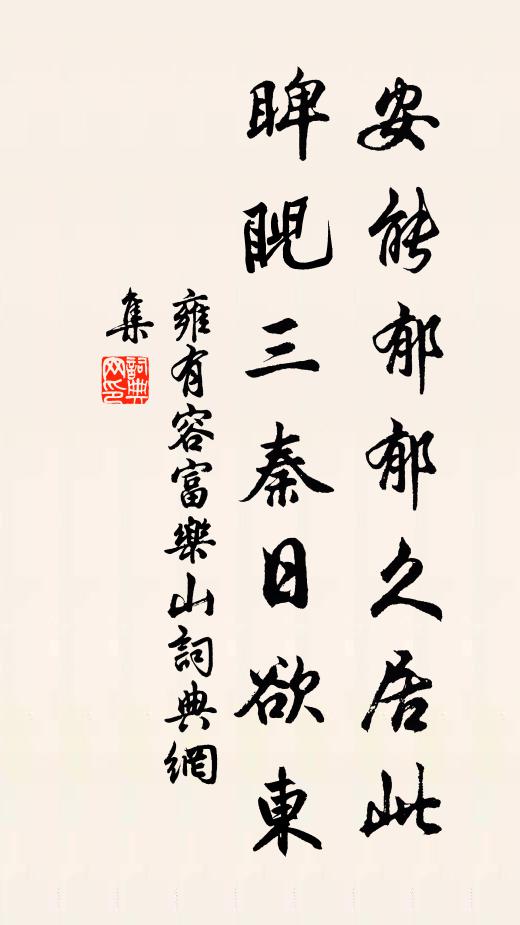 安能郁郁久居此
睥睨三秦日欲東
雍有容富樂山詞典網
集
詞典
网印